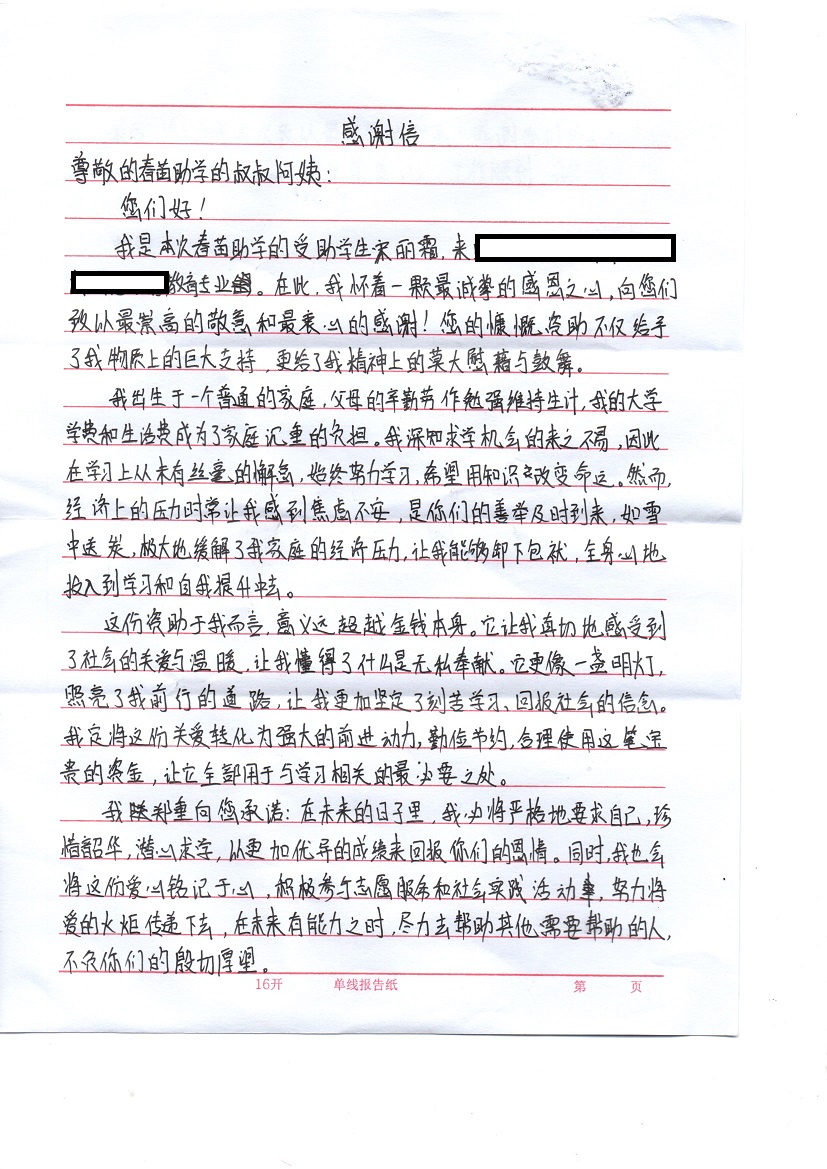 感谢信
尊敬的春苗助学的叔叔阿姨：
您们好！
我是本次春苗助学的受助学生宋丽霜，来
教育专业。在此，我怀着一颗最诚挚的感恩之心，向您们
致以最崇高的敬意和最衷心的感谢！您的慷慨资助不仅给予
了我物质上的巨大支持，更给了我精神上的莫大慰藉与鼓舞。
我出生于一个普通的家庭，父母的辛勤劳作勉强维持生计，我的大学
学费和生活费成为了家庭沉重的负担。我深知求学机会的来之不易，因此
在学习上从未有丝毫的懈怠，始终努力学习，希望用知识改变命运。然而，
经济上的压力时常让我感到焦虑不安，是你们的善举及时到来，如雪
中送炭，极大地缓解了我家庭的经济压力，让我能够卸下包袱，全身心地
投入到学习和自我提升中去。
这份资助于我而言，意义远超越金钱本身。它让我真切地感受到
了社会的关爱与温暖，让我懂得了什么是无私奉献。它更像一盏明灯，
照亮了我前行的道路，让我更加坚定了刻苦学习、回报社会的信念。
我定将这份关爱转化为强大的前进动力，勤俭节约，合理使用这笔宝
贵的资金，让它全部用于与学习相关的最必要之处。
我郑重向您承诺：在未来的日子里，我必将严格地要求自己，珍
惜韶华，潜心求学，以更加优异的成绩来回报你们的恩情。同时，我也会
将这份爱心铭记于心，积极参与志愿服务和社会实践活动，努力将
爱的火炬传递下去，在未来有能力之时，尽力去帮助其他需要帮助的人，
不负你们的殷切厚望。
16开 单线报告纸 第 页